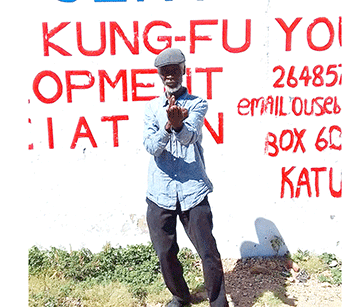 KUNG-FU YOU
OPMENT 264857
EMAIL OUSEB
IATION BOX 60
KATU